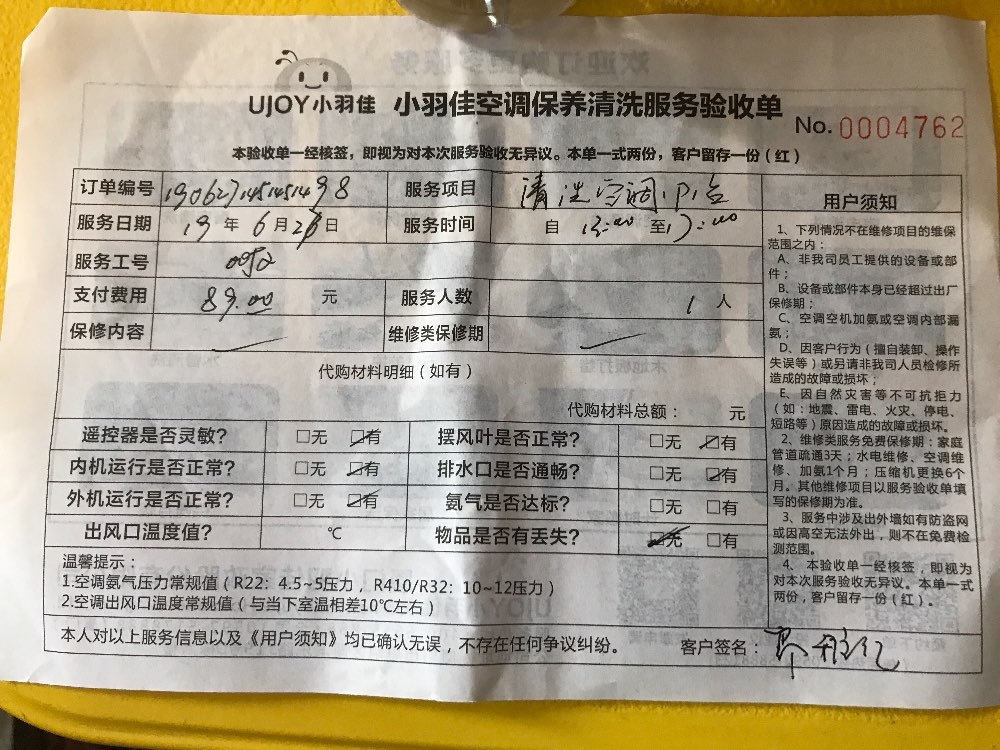 UJOY小羽佳 小羽佳空调保养清洗服务验收单
No. 0004762
本验收单一经核签，即视为对本次服务验收无异议。本单一式两份，客户留存一份（红）
订单编号 服务项目 清洗空调
服务日期 19 年 6 月 日 服务时间 自 至
服务工号
支付费用 89.00 元 服务人数 1 人
保修内容 维修类保修期
代购材料明细（如有）
代购材料总额： 元
遥控器是否灵敏？ □无 ☑有 摆风叶是否正常？ □无 ☑有
内机运行是否正常？ □无 ☑有 排水口是否通畅？ □无 ☑有
外机运行是否正常？ □无 ☑有 氨气是否达标？ □无 □有
出风口温度值？ ℃ 物品是否有丢失？ ☑无 □有
温馨提示：
1.空调氨气压力常规值（R22：4.5~5压力，R410/R32：10~12压力）
2.空调出风口温度常规值（与当下室温相差10℃左右）
本人对以上服务信息以及《用户须知》均已确认无误，不存在任何争议纠纷。 客户签名：
用户须知
1、下列情况不在维修项目的维保
范围之内：
A、非我司员工提供的设备或部
件；
B、设备或部件本身已经超过出厂
保修期；
C、空调空机加氨或空调内部漏
氨；
D、因客户行为（擅自装卸、操作
失误等）或另请非我司人员检修所
造成的故障或损坏；
E、因自然灾害等不可抗拒力
（如：地震、雷电、火灾、停电、
短路等）原因造成的故障或损坏。
2、维修类服务免费保修期：家庭
管道疏通3天；水电维修、空调维
修、加氨1个月；压缩机更换6个
月。其他维修项目以服务验收单填
写的保修期为准。
3、服务中涉及出外墙如有防盗网
或因高空无法外出，则不在免费检
测范围。
4、本验收单一经核签，即视为
对本次服务验收无异议。本单一式
两份，客户留存一份（红）。